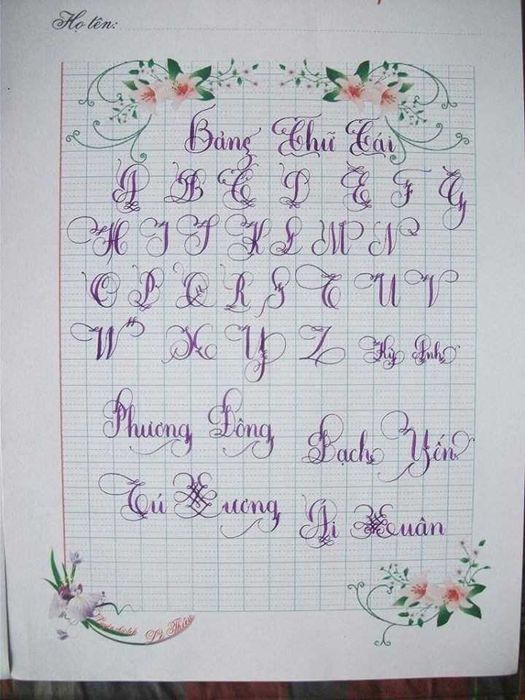 Họ tên:
Bảng Chữ Cái
A B C D E F G
H I J K L M N
O P Q R S T U V
W X Y Z Kỳ Anh
Phương Đông
Bạch Yến
Tú Xương
Ái Xuân